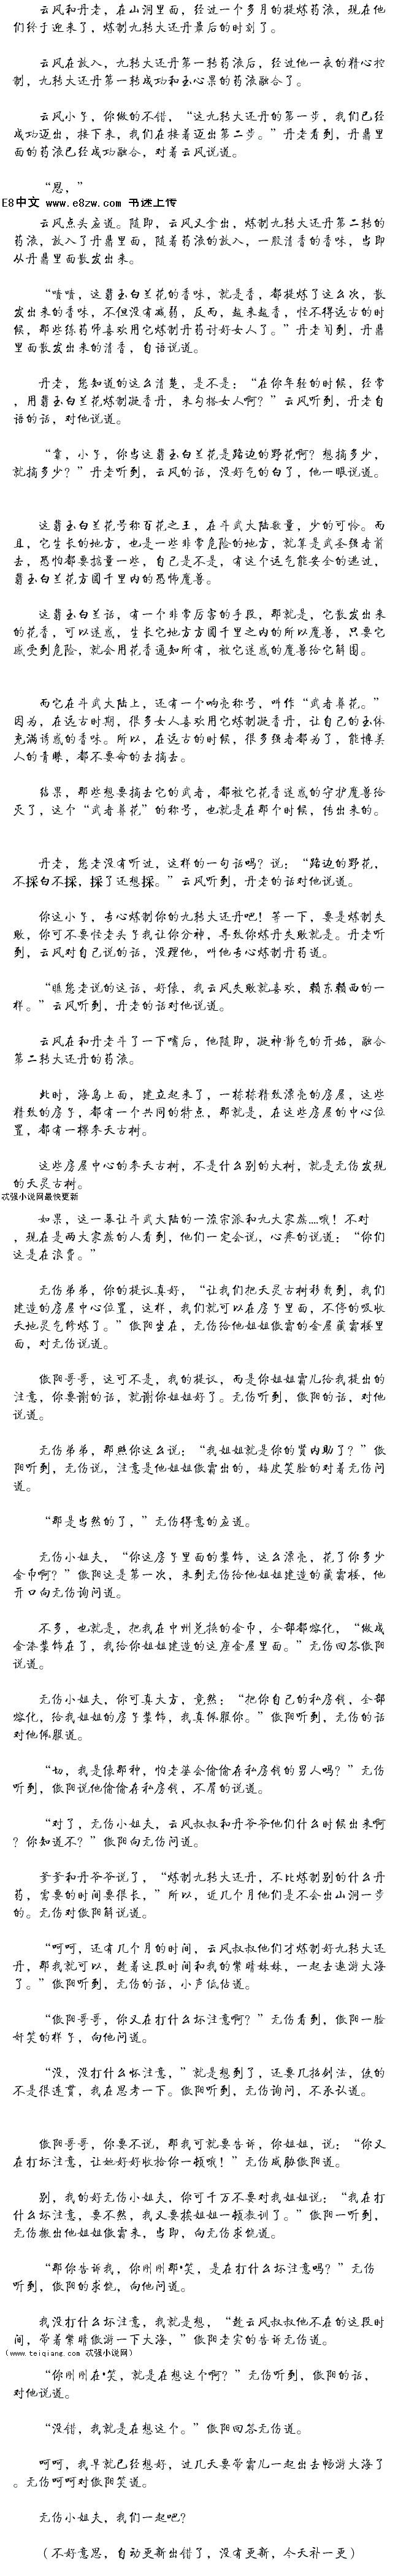 云风和丹老，在山洞里面，经过一个多月的提炼药液，现在他
们终于迎来了，炼制九转大还丹最后的时刻了。
云风在放入，九转大还丹第一转药液后，经过他一夜的精心控
制，九转大还丹第一转成功和玉心果的药液融合了。
云风小子，你做的不错，“这九转大还丹的第一步，我们已经
成功迈出，接下来，我们在接着迈出第二步。”丹老看到，丹鼎里
面的药液已经成功融合，对着云风说道。
“恩，”
E8中文 www.e8zw.com 书迷上传
云风点头应道。随即，云风又拿出，炼制九转大还丹第二转的
药液，放入了丹鼎里面，随着药液的放入，一股清香的香味，当即
从丹鼎里面散发出来。
“啧啧，这翡玉白兰花的香味，就是香，都提炼了这么次，散
发出来的香味，不但没有减弱，反而，越来越香，怪不得远古的时
候，那些炼药师喜欢用它炼制丹药讨好女人了。”丹老闻到，丹鼎
里面散发出来的清香，自语说道。
丹老，您知道的这么清楚，是不是：“在你年轻的时候，经常
，用翡玉白兰花炼制凝香丹，来勾搭女人啊？”云风听到，丹老自
语的话，对他说道。
“靠，小子，你当这翡玉白兰花是路边的野花啊？想摘多少，
就摘多少？”丹老听到，云风的话，没好气的白了，他一眼说道。
这翡玉白兰花号称百花之王，在斗武大陆数量，少的可怜。而
且，它生长的地方，也是一些非常危险的地方，就算是武圣强者前
去，恐怕都要掂量一些，自己是不是，有这个运气能安全的逃过，
翡玉白兰花方圆千里内的恐怖魔兽。
这翡玉白兰话，有一个非常厉害的手段，那就是，它散发出来
的花香，可以迷惑，生长它地方方圆千里之内的所以魔兽，只要它
感受到危险，就会用花香通知所有，被它迷惑的魔兽给它解围。
而它在斗武大陆上，还有一个响亮称号，叫作“武者葬花。”
因为，在远古时期，很多女人喜欢用它炼制凝香丹，让自己的玉体
充满诱惑的香味。所以，在远古的时候，很多强者都为了，能博美
人的青睐，都不要命的去摘去。
结果，那些想要摘去它的武者，都被它花香迷惑的守护魔兽给
灭了，这个“武者葬花”的称号，也就是在那个时候，传出来的。
丹老，您老没有听过，这样的一句话吗？说：“路边的野花，
不採白不採，採了还想採。”云风听到，丹老的话对他说道。
你这小子，专心炼制你的九转大还丹吧！等一下，要是炼制失
败，你可不要怪老头子我让你分神，导致你炼丹失败就是。丹老听
到，云风对自己说的话，没理他，叫他专心炼制丹药道。
“瞧您老说的这话，好像，我云风失败就喜欢，赖东赖西的一
样。”云风听到，丹老的话对他说道。
云风在和丹老斗了一下嘴后，他随即，凝神静气的开始，融合
第二转大还丹的药液。
此时，海岛上面，建立起来了，一栋栋精致漂亮的房屋，这些
精致的房子，都有一个共同的特点，那就是，在这些房屋的中心位
置，都有一棵参天古树。
这些房屋中心的参天古树，不是什么别的大树，就是无伤发现
的天灵古树。
忒强小说网最快更新
如果，这一幕让斗武大陆的一流宗派和九大家族....哦！不对
，现在是两大家族的人看到，他们一定会说，心疼的说道：“你们
这是在浪费。”
无伤弟弟，你的提议真好，“让我们把天灵古树移栽到，我们
建造的房屋中心位置，这样，我们就可以在房子里面，不停的吸收
天地灵气修炼了。”傲阳坐在，无伤给他姐姐傲霜的金屋藏霜楼里
面，对无伤说道。
傲阳哥哥，这可不是，我的提议，而是你姐姐霜儿给我提出的
注意，你要谢的话，就谢你姐姐好了。无伤听到，傲阳的话，对他
说道。
无伤弟弟，那照你这么说：“我姐姐就是你的贤内助了？”傲
阳听到，无伤说，注意是他姐姐傲霜出的，嬉皮笑脸的对着无伤问
道。
“那是当然的了，”无伤得意的应道。
无伤小姐夫，“你这房子里面的装饰，这么漂亮，花了你多少
金币啊？”傲阳这是第一次，来到无伤给他姐姐建造的藏霜楼，他
开口向无伤询问道。
不多，也就是，把我在中州兑换的金币，全部都熔化，“做成
金漆装饰在了，我给你姐姐建造的这座金屋里面。”无伤回答傲阳
说道。
无伤小姐夫，你可真大方，竟然：“把你自己的私房钱，全部
熔化，给我姐姐的房子装饰，我真佩服你。”傲阳听到，无伤的话
对他佩服道。
“切，我是像那种，怕老婆会偷偷在私房钱的男人吗？”无伤
听到，傲阳说他偷偷在私房钱，不屑的说道。
“对了，无伤小姐夫，云风叔叔和丹爷爷他们什么时候出来啊
？你知道不？”傲阳向无伤问道。
爹爹和丹爷爷说了，“炼制九转大还丹，不比炼制别的什么丹
药，需要的时间要很长，”所以，近几个月他们是不会出山洞一步
的。无伤对傲阳解说道。
“呵呵，还有几个月的时间，云风叔叔他们才炼制好九转大还
丹，那我就可以，趁着这段时间和我的紫晴妹妹，一起去遨游大海
了。”傲阳听到，无伤的话，小声低估道。
“傲阳哥哥，你又在打什么坏注意啊？”无伤看到，傲阳一脸
奸笑的样子，向他问道。
“没，没打什么怀注意，”就是想到了，还要几招剑法，使的
不是很连贯，我在思考一下。傲阳听到，无伤询问，不承认道。
傲阳哥哥，你要不说，那我可就要告诉，你姐姐，说：“你又
在打坏注意，让她好好收拾你一顿哦！”无伤威胁傲阳道。
别，我的好无伤小姐夫，你可千万不要对我姐姐说：“我在打
什么坏注意，要不然，我又要挨姐姐一顿教训了。”傲阳一听到，
无伤搬出他姐姐傲霜来，当即，向无伤求饶道。
“那你告诉我，你刚刚那·笑，是在打什么坏注意吗？”无伤
听到，傲阳的求饶，向他问道。
我没打什么坏注意，我就是想，“趁云风叔叔他不在的这段时
间，带着紫晴傲游一下大海，”傲阳老实的告诉无伤道。
（www.teiqiang.com 忒强小说网）
“你刚刚在·笑，就是在想这个啊？”无伤听到，傲阳的话，
对他说道。
“没错，我就是在想这个。”傲阳回答无伤道。
呵呵，我早就已经想好，过几天要带霜儿一起出去畅游大海了
。无伤呵呵对傲阳笑道。
无伤小姐夫，我们一起吧？
（不好意思，自动更新出错了，没有更新，今天补一更）